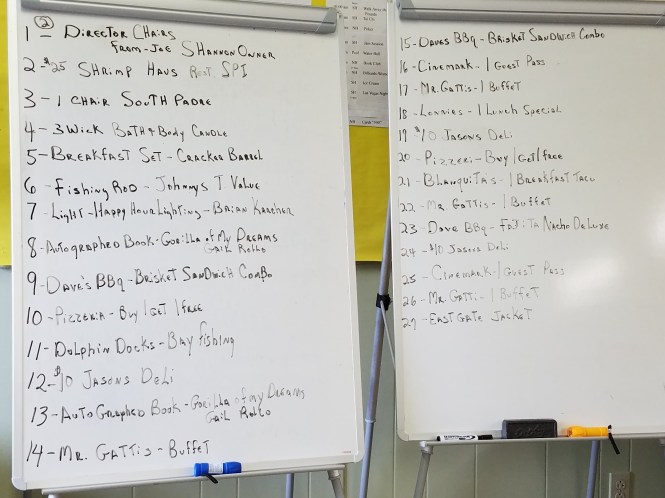 1 - ② Director Chairs
From - Joe Shannon Owner
2 - $25 Shrimp Haus Rest. SPI
3 - 1 Chair South Padre
4 - 3 Wick Bath & Body Candle
5 - Breakfast Set - Cracker Barrel
6 - Fishing Rod - Johnnys T Value
7 - Light - Happy Hour Lighting - Brian Karcher
8 - Autographed Book - Gorilla of My Dreams
Gail Rollo
9 - Dave's BBq - Brisket Sandwich Combo
10 - Pizzeria - Buy 1 get 1 free
11 - Dolphin Docks - Bay fishing
12 - $10 Jasons Deli
13 - Auto Graphed Book - Gorilla of my Dreams
Gail Rollo
14 - Mr. Gattis - Buffet
15 - Daves BBq - Brisket Sandwich Combo
16 - Cinemark - 1 Guest Pass
17 - Mr. Gattis - 1 Buffet
18 - 1 Lunch Special
19 $10 Jasons Deli
20 - Pizzeri - Buy 1 get 1 free
21 - Blanquita's - 1 Breakfast Taco
22 - Mr Gattis - 1 Buffet
23 - Dave BBq - Nacho DeLuxe
24 - $10 Jasons Deli
25 - Cinemark - 1 Guest Pass
26 - Mr. Gatti - 1 Buffet
27 - East Gate Jacket